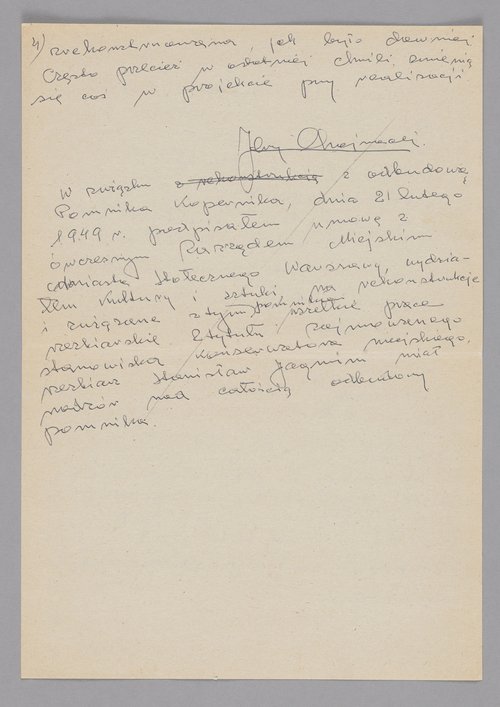 4) zrekonstruowana, jak było dawniej
Często przecież w ostatniej chwili zmienia
się coś w projekcie przy realizacji
Jerzy Chojnacki.
W związku z rekonstrukcją z odbudową
Pomnika Kopernika, dnia 21 lutego
1949 r. podpisałem umowę z
ówczesnym Zarządem Miejskim
miasta stołecznego Warszawy, wydzia-
łem Kultury i sztuki na rekonstrukcje
i związane z tym pomnikiem wszelkie prace
rzeźbiarskie. Z tytułu zajmowanego
stanowiska konserwatora miejskiego,
rzeźbiarz Stanisław Jagmin miał
nadzór nad całością odbudowy
pomnika.